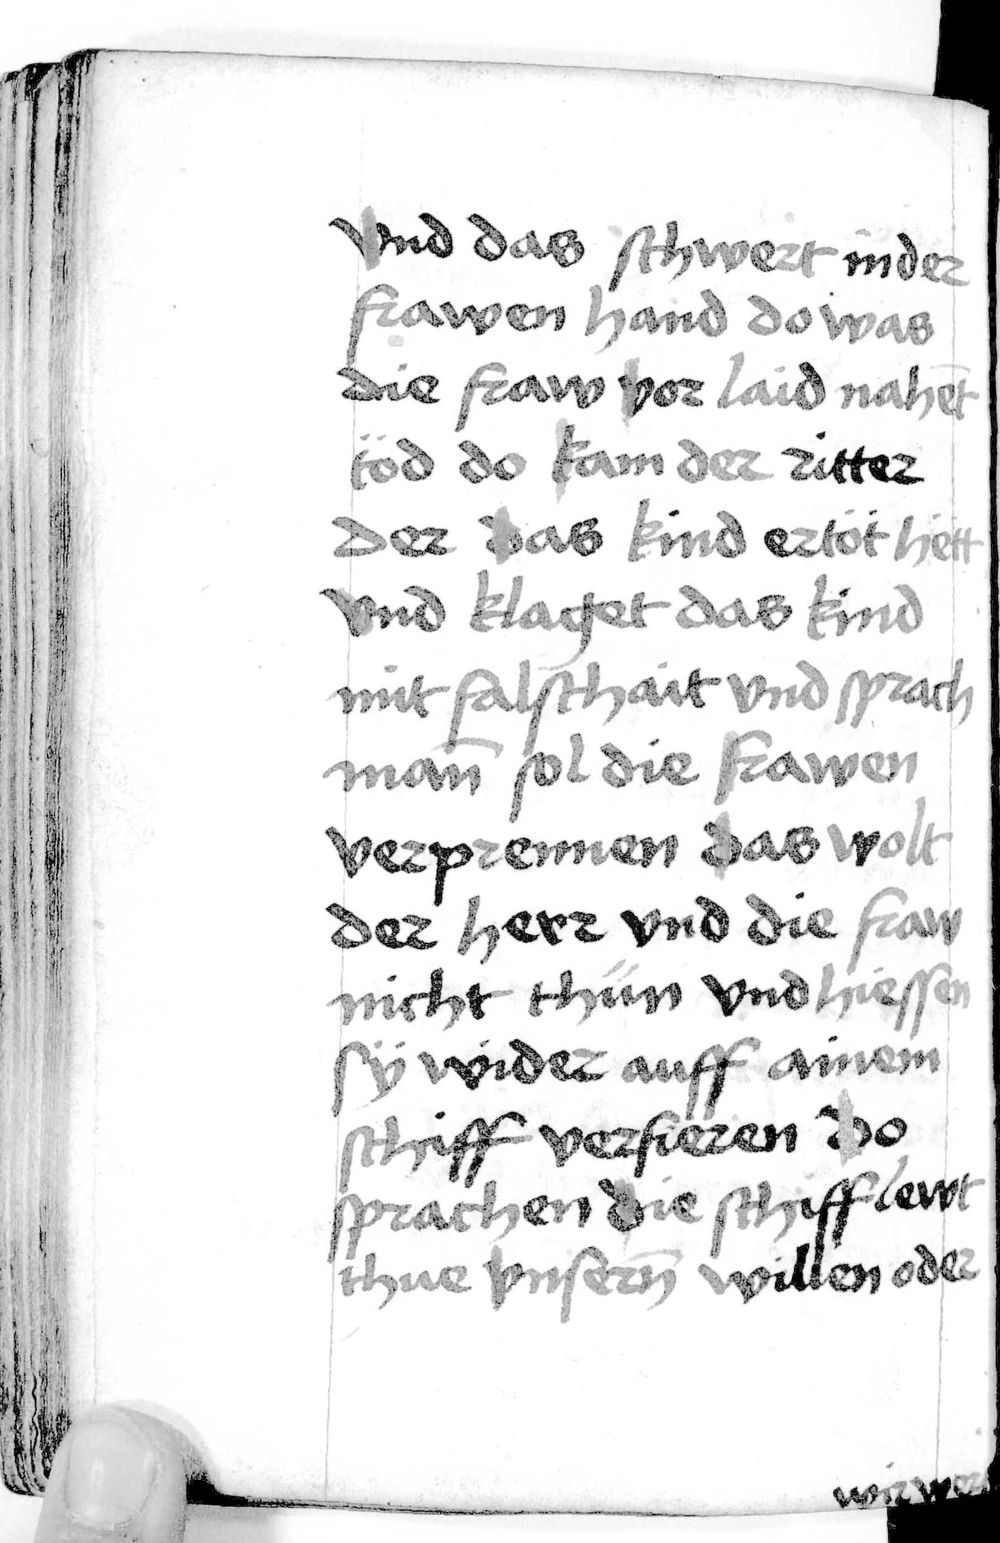 vnd das schwert in der
frawen hand do was
die fraw vor laid nahēt
töd do kam der ritter
der das kind ertöt hett
vnd klaget das kind
mit falschait vnd sprach
man̄ sol die frawen
verprennen das wolt
der herr vnd die fraw
nicht thün vnd hiessen
sÿ wider auff ainem
schiff versieren do
sprachen die schifflewt
thue vnsern̄ willen oder
wir wer